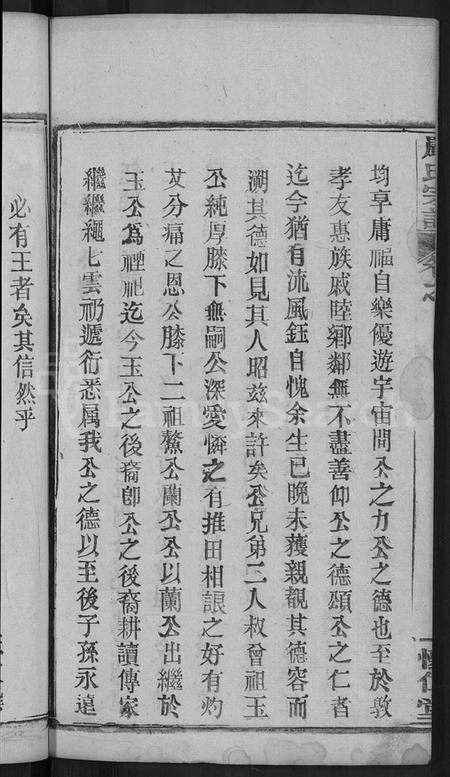 均享庸福自樂優遊宇宙間公之力公之德也至於敦
孝友惠族戚睦鄉鄰無不盡善仰公之德頌公之仁者
迄今猶有流風鈺自愧余生已晚未獲親覩其德容而
溯其德如見其人昭茲來許矣公兄弟二人叔曾祖玉
公純厚膝下無嗣公深愛憐之有推田相讓之好有灼
艾分痛之恩公膝下二祖鰲公蘭公公以蘭公出繼於
玉公為禋祀迄今玉公之後裔卽公之後裔耕讀傳家
繼繼繩七雲礽遞衍悉属我公之德以至後子孫永遠
必有王者矣其信然乎
氏宗譜
FamilySearch